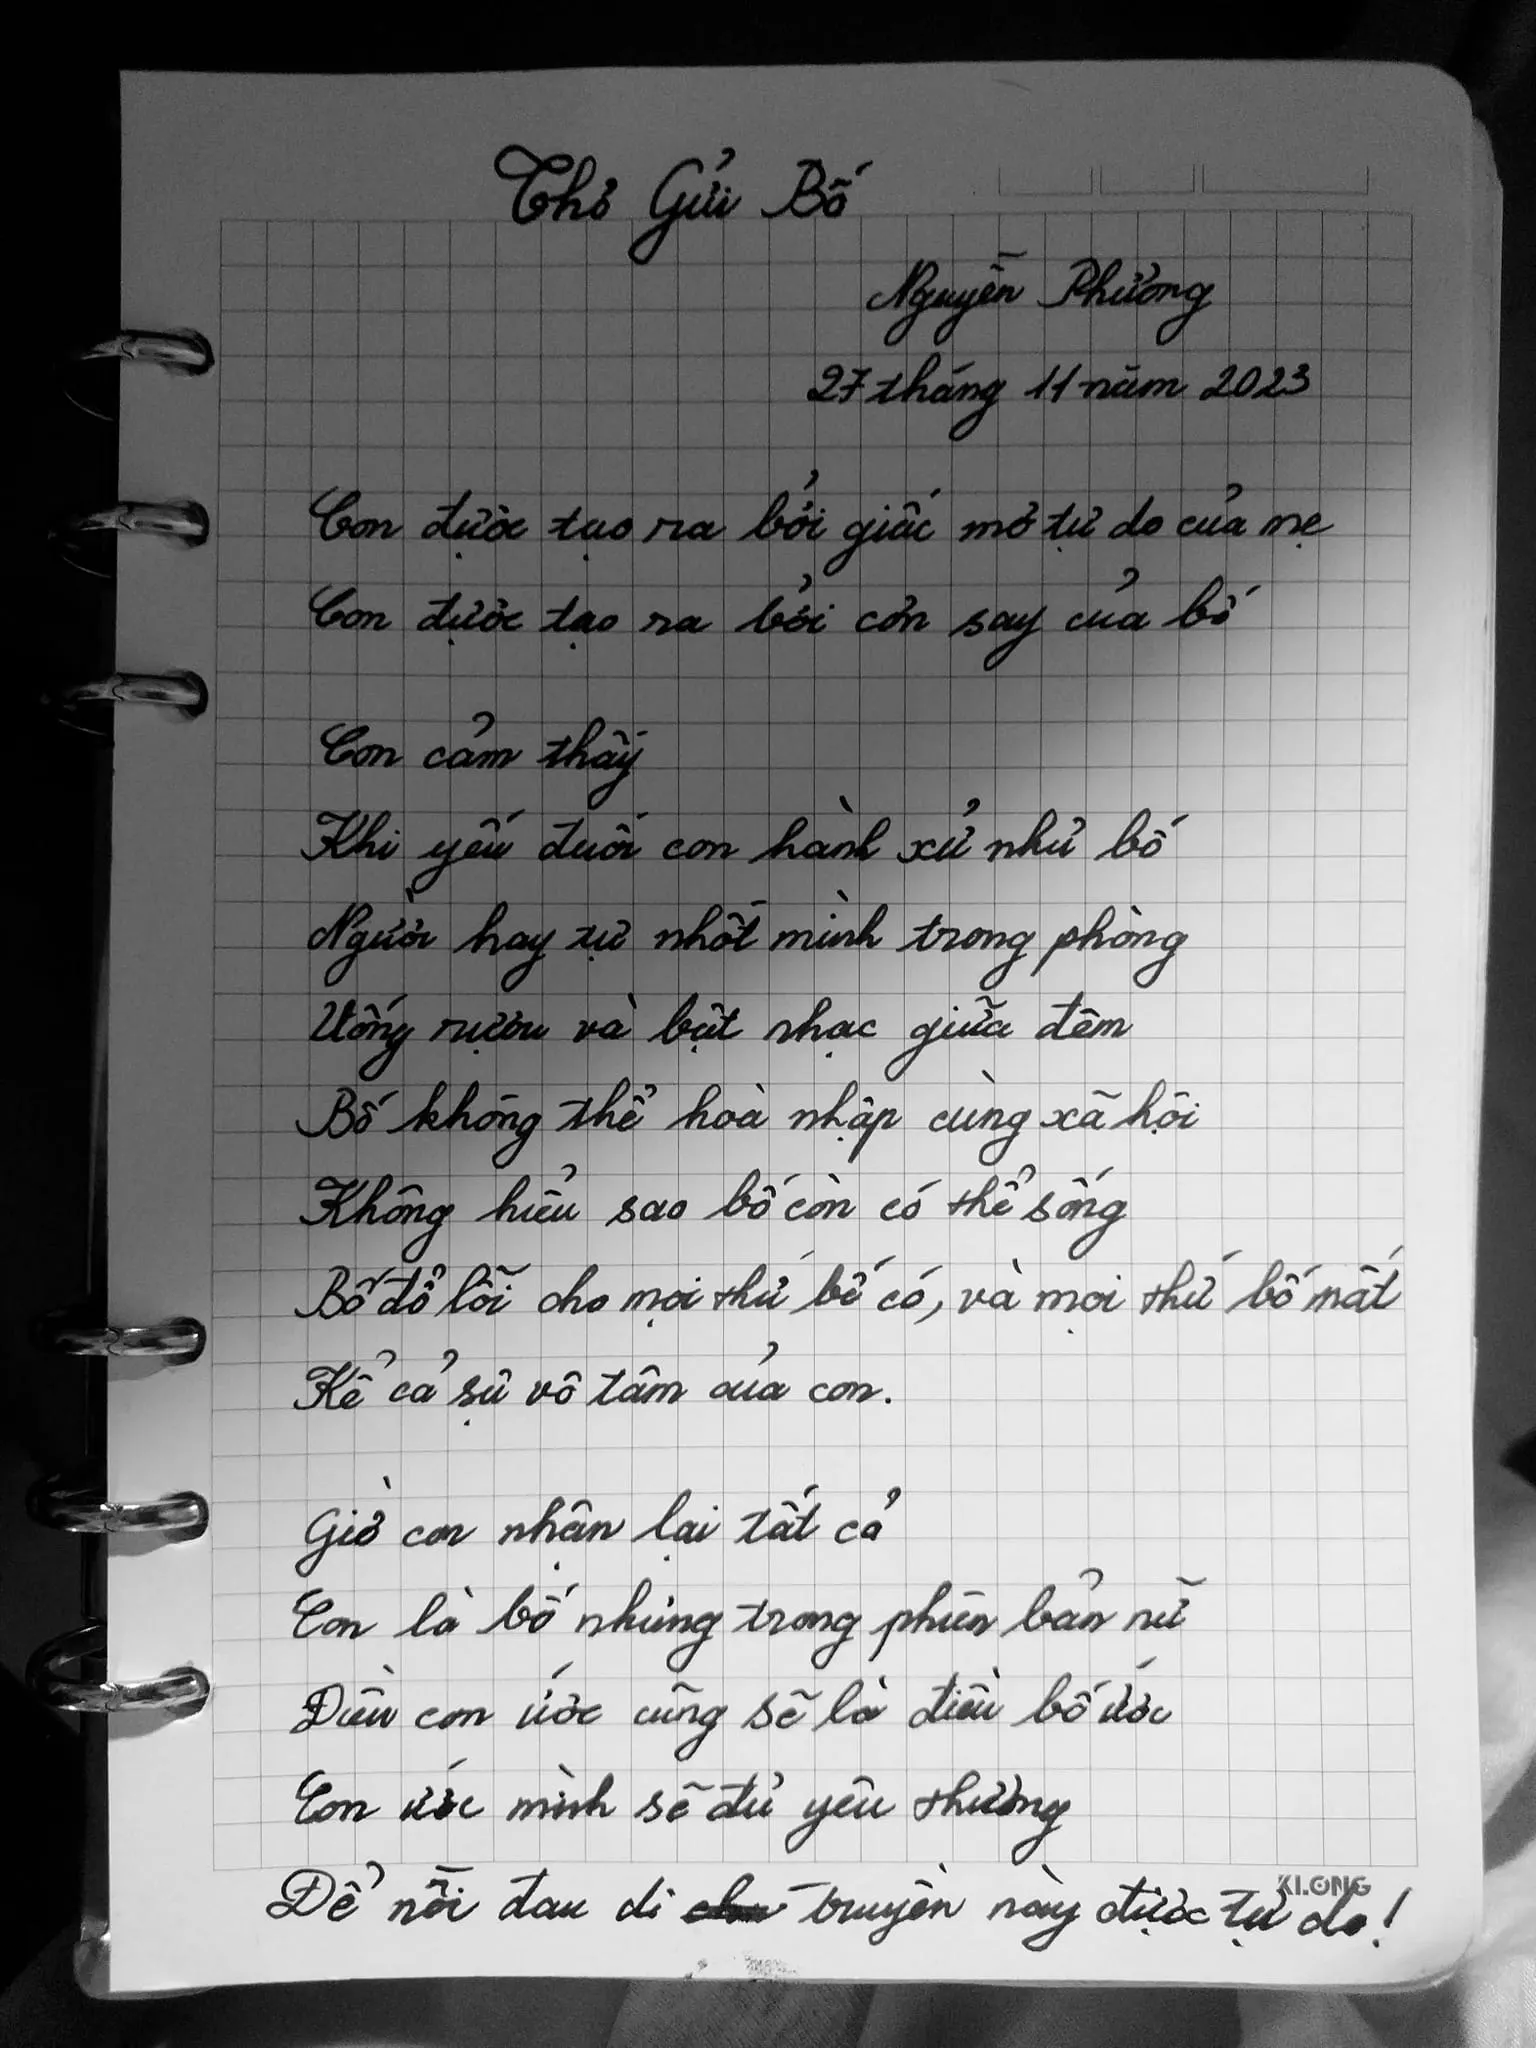 Thơ Gửi Bố
Nguyễn Phương
27 tháng 11 năm 2023
Con được tạo ra bởi giấc mơ tự do của mẹ
Con được tạo ra bởi cơn say của bố
Con cảm thấy
Khi yếu đuối con hành xử như bố
Người hay tự nhốt mình trong phòng
Uống rượu và bật nhạc giữa đêm
Bố không thể hoà nhập cùng xã hội
Không hiểu sao bố còn có thể sống
Bố đổ lỗi cho mọi thứ bố có, và mọi thứ bố mất
Kể cả sự vô tâm của con.
Giờ con nhận lại tất cả
Con là bố nhưng trong phiên bản nữ
Điều con ước cũng sẽ là điều bố ước
Con ước mình sẽ đủ yêu thương
Để nỗi đau di truyền này được tự do!
KLONG